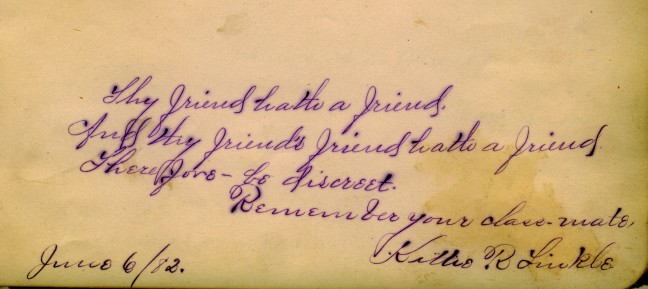 Thy friend hath a friend.
And thy friend's friend hath a friend
Therefore - be discreet.
Remember your class-mate,
Kittie R Linkle
June 6/82.